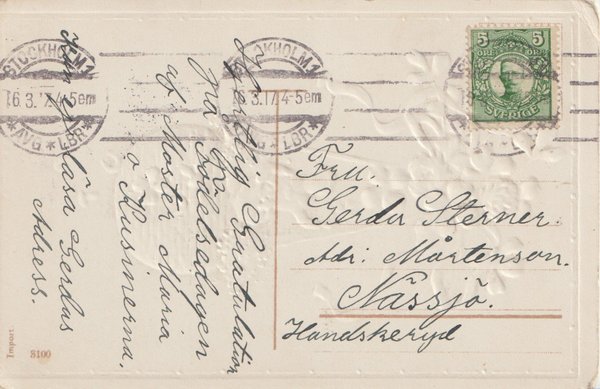 STOCKHOLM 1
16.3.17.4-5em
*AVG*LBR*
STOCKHOLM 1
16.3.17.4-5em
*AVG*LBR*
5 5
ÖRE
SVERIGE
Hjertlig Gratulation
på Födelsedagen
af Moster Maria
o Kusinerna.
Kan ej läsa Gerdas
Adress.
Fru.
Gerda Sterner
Adr. Mårtenson.
Nässjö.
Handskeryd
Import
8100